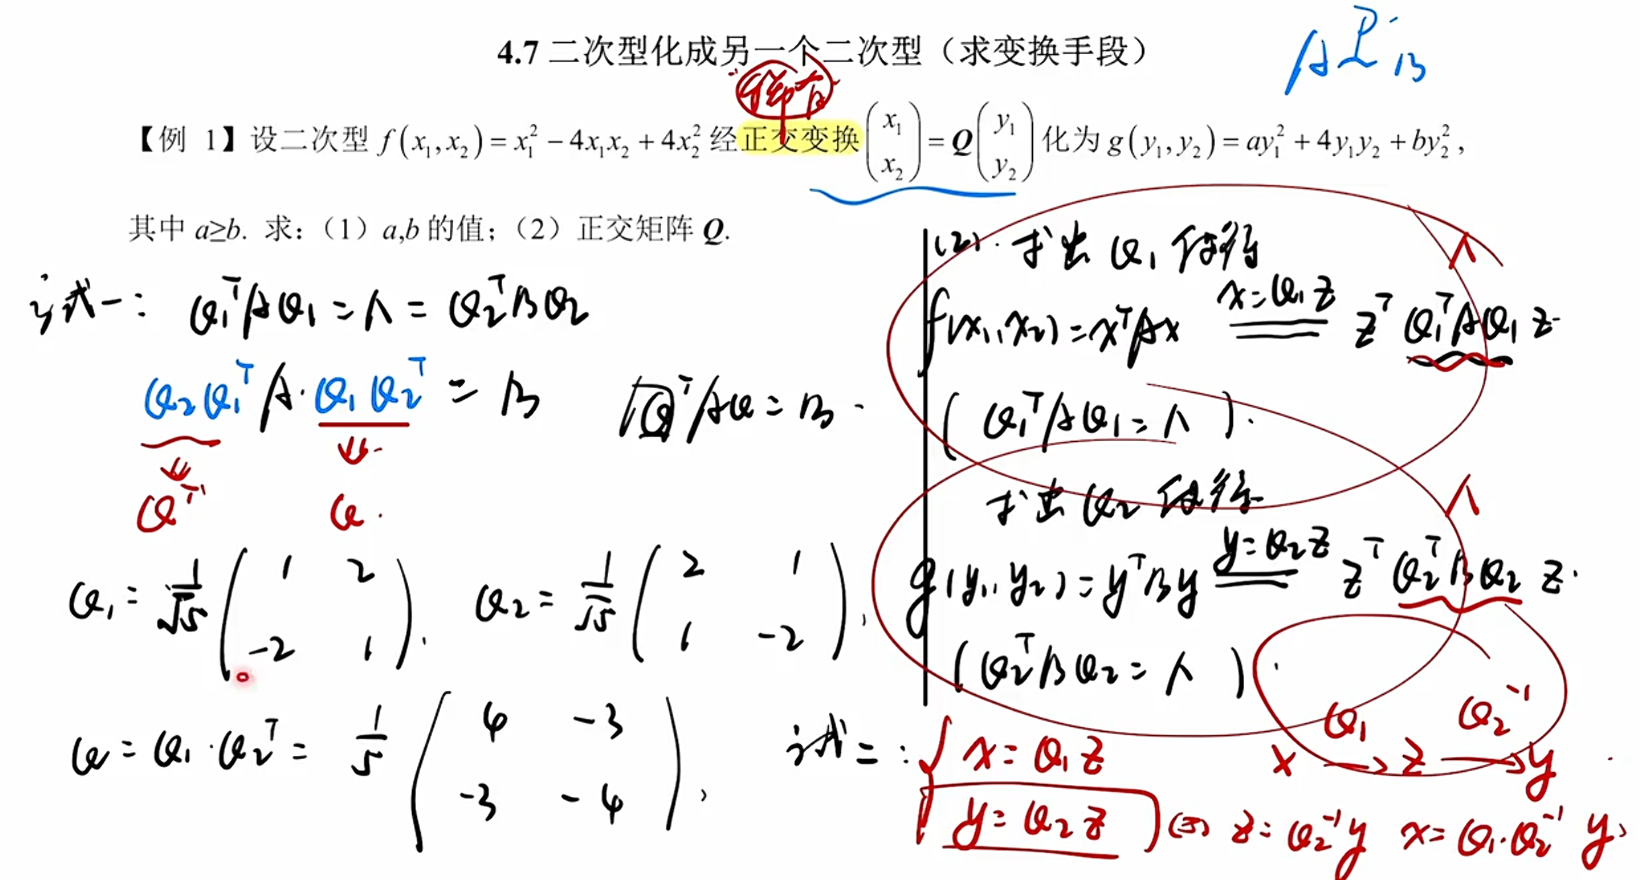 4.7 二次型化成另一个二次型（求变换手段）
【例 1】设二次型 f(x₁,x₂)=x₁²−4x₁x₂+4x₂² 经正交变换 (x₁ x₂) = Q (y₁ y₂) 化为 g(y₁,y₂)=ay₁²+4y₁y₂+by₂²,
其中 a≥b. 求：（1）a,b 的值；（2）正交矩阵 Q.
式一: Q₁ᵀAQ₁ = Λ = Q₂ᵀBQ₂
Q₂Q₁ᵀ A · Q₁Q₂ᵀ = B
QᵀAQ = B.
Qᵀ Q.
Q₁ = 1/√5 (1 2 -2 1). Q₂ = 1/√5 (2 1 1 -2),
Q = Q₁·Q₂ᵀ = 1/5 (4 -3 -3 -4),
(2). 求出 Q₁ 使得 Λ
f(x₁,x₂)=xᵀAx x=Q₁z zᵀQ₁ᵀAQ₁z
(Q₁ᵀAQ₁=Λ).
求出 Q₂ 使得 Λ
g(y₁,y₂)=yᵀBy y=Q₂z zᵀQ₂ᵀBQ₂z.
(Q₂ᵀBQ₂=Λ).
Q₁ Q₂⁻¹
式二: { x=Q₁z x → z → y
y=Q₂z z=Q₂⁻¹y x=Q₁·Q₂⁻¹y,